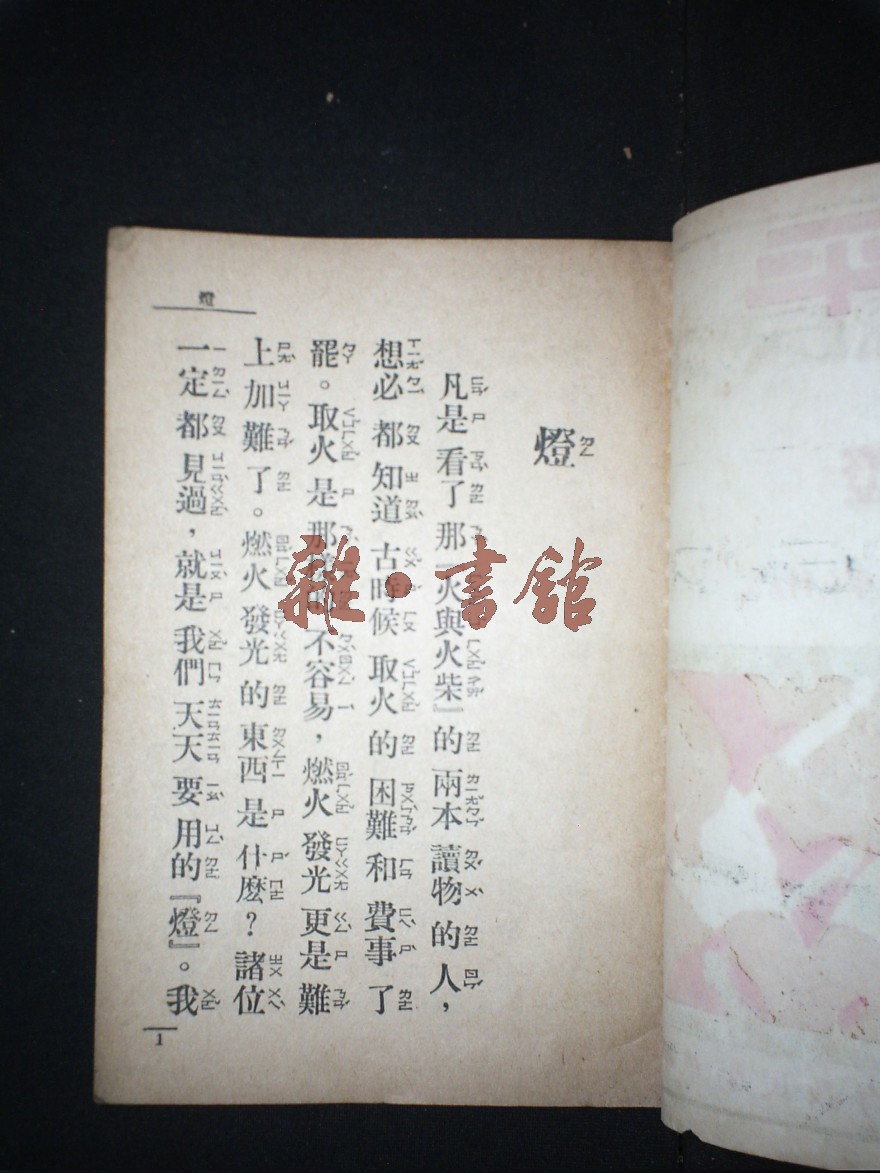 燈
燈
凡是看了那『火與火柴』的兩本讀物的人，
想必都知道古時候取火的困難和費事了
罷。取火是那不容易，燃火發光更是難
上加難了。燃火發光的東西是什麼？諸位
一定都見過，就是我們天天要用的『燈』。我
1
雜·書館